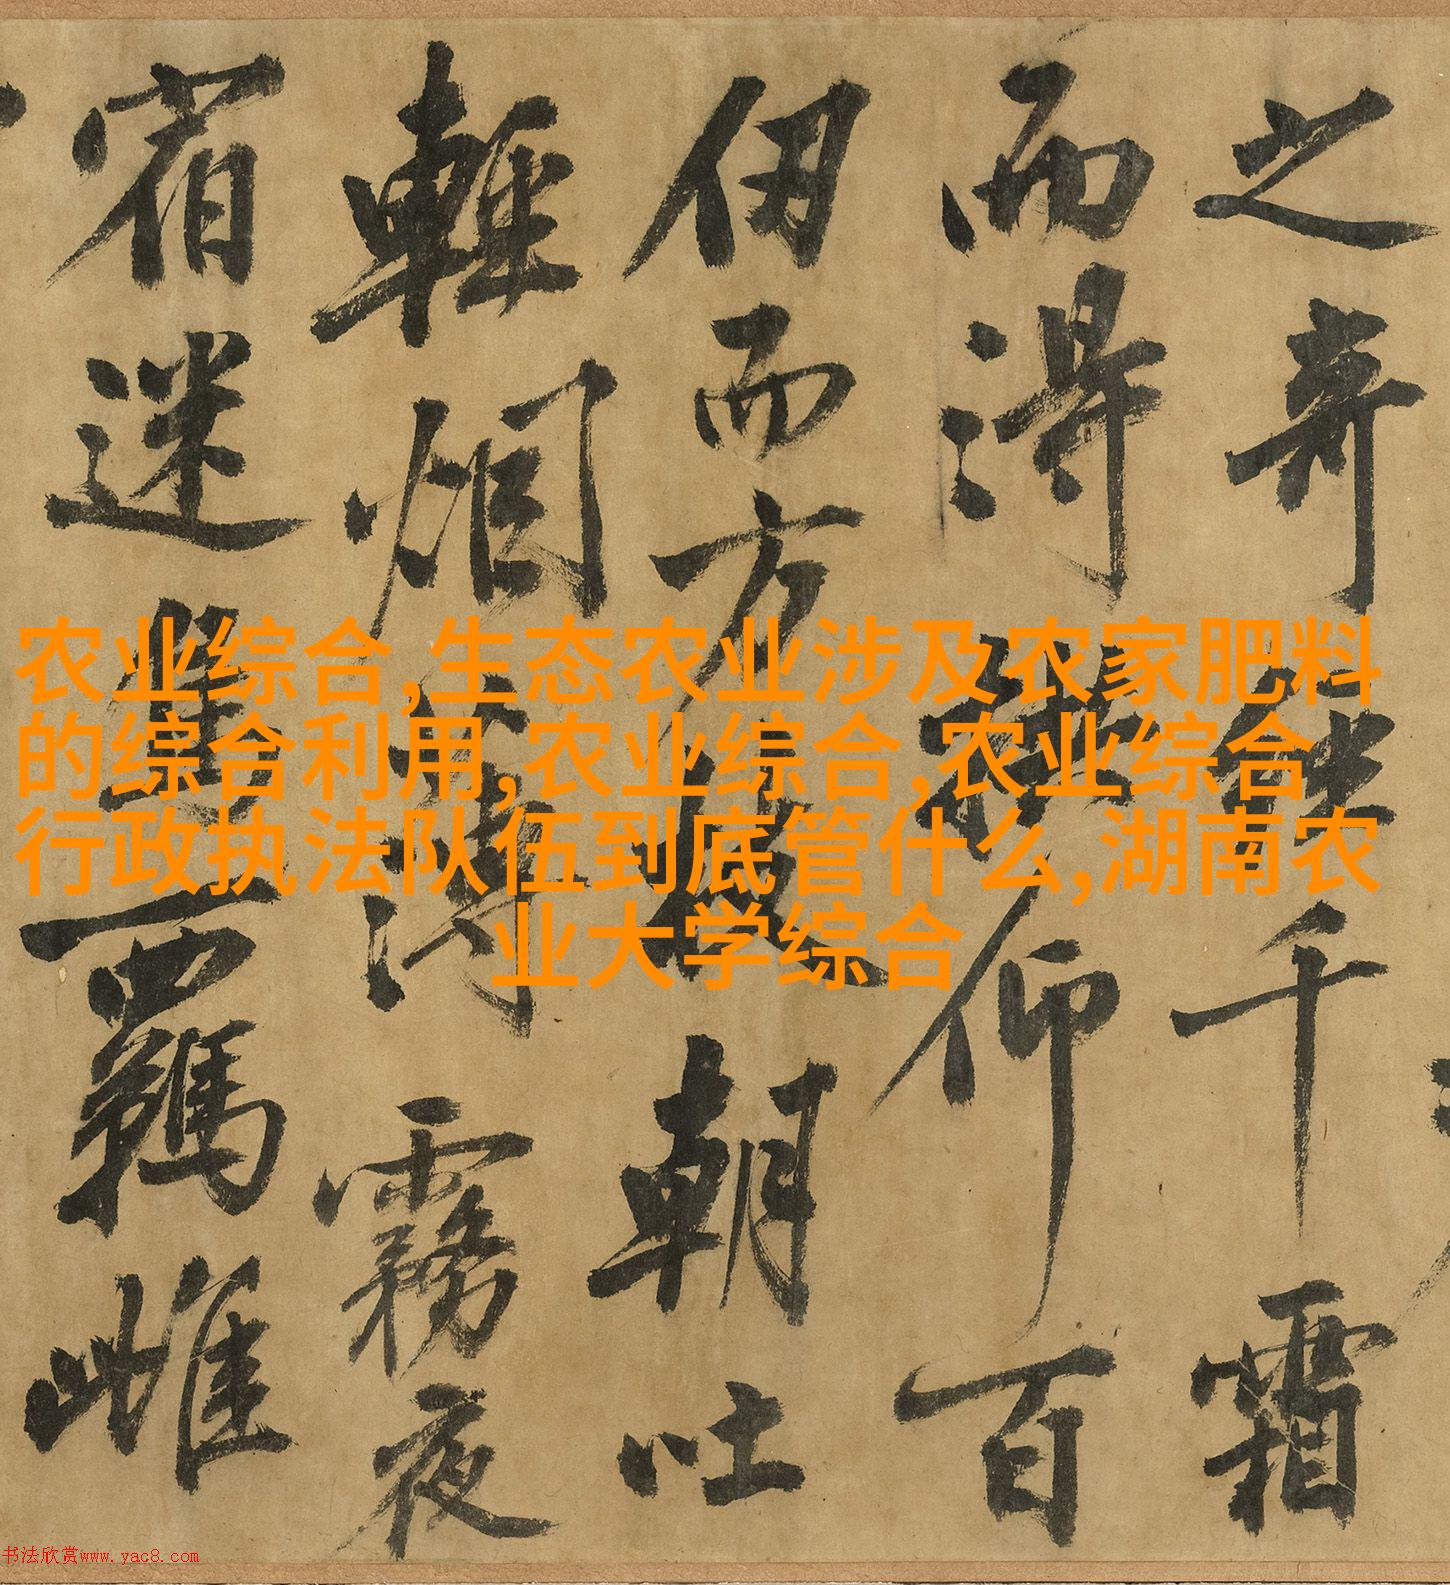 之奇千霜
而得仰百
仞而方朝吐
輕烟薄霧夜
宿迷羈雌
农业综合,生态农业涉及农家肥料
的综合利用,农业综合,农业综合
行政执法队伍到底管什么,湖南农
业大学综合
书法欣赏www.yac8.com